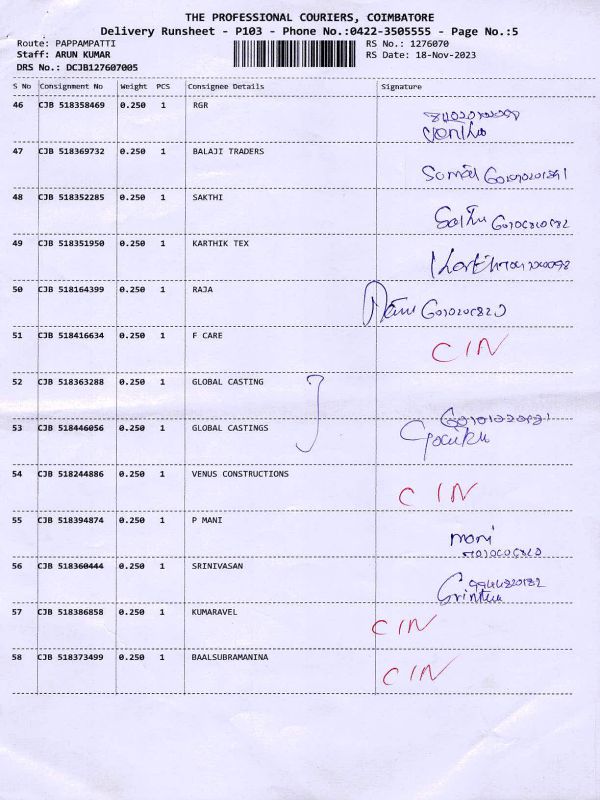 THE PROFESSIONAL COURIERS, COIMBATORE
Delivery Runsheet - P103 - Phone No.:0422-3505555 - Page No.:5
Route: PAPPAMPATTI RS No.: 1276070
Staff: ARUN KUMAR RS Date: 18-Nov-2023
DRS No.: DCJB127607005
S No Consignment No Weight PCS Consignee Details Signature
46 CJB 518358469 0.250 1 RGR
47 CJB 518369732 0.250 1 BALAJI TRADERS
48 CJB 518352285 0.250 1 SAKTHI
49 CJB 518351950 0.250 1 KARTHIK TEX
50 CJB 518164399 0.250 1 RAJA
51 CJB 518416634 0.250 1 F CARE CIN
52 CJB 518363288 0.250 1 GLOBAL CASTING
53 CJB 518446056 0.250 1 GLOBAL CASTINGS
54 CJB 518244886 0.250 1 VENUS CONSTRUCTIONS CIN
55 CJB 518394874 0.250 1 P MANI mani
56 CJB 518360444 0.250 1 SRINIVASAN
57 CJB 518386858 0.250 1 KUMARAVEL CIN
58 CJB 518373499 0.250 1 BAALSUBRAMANINA CIN